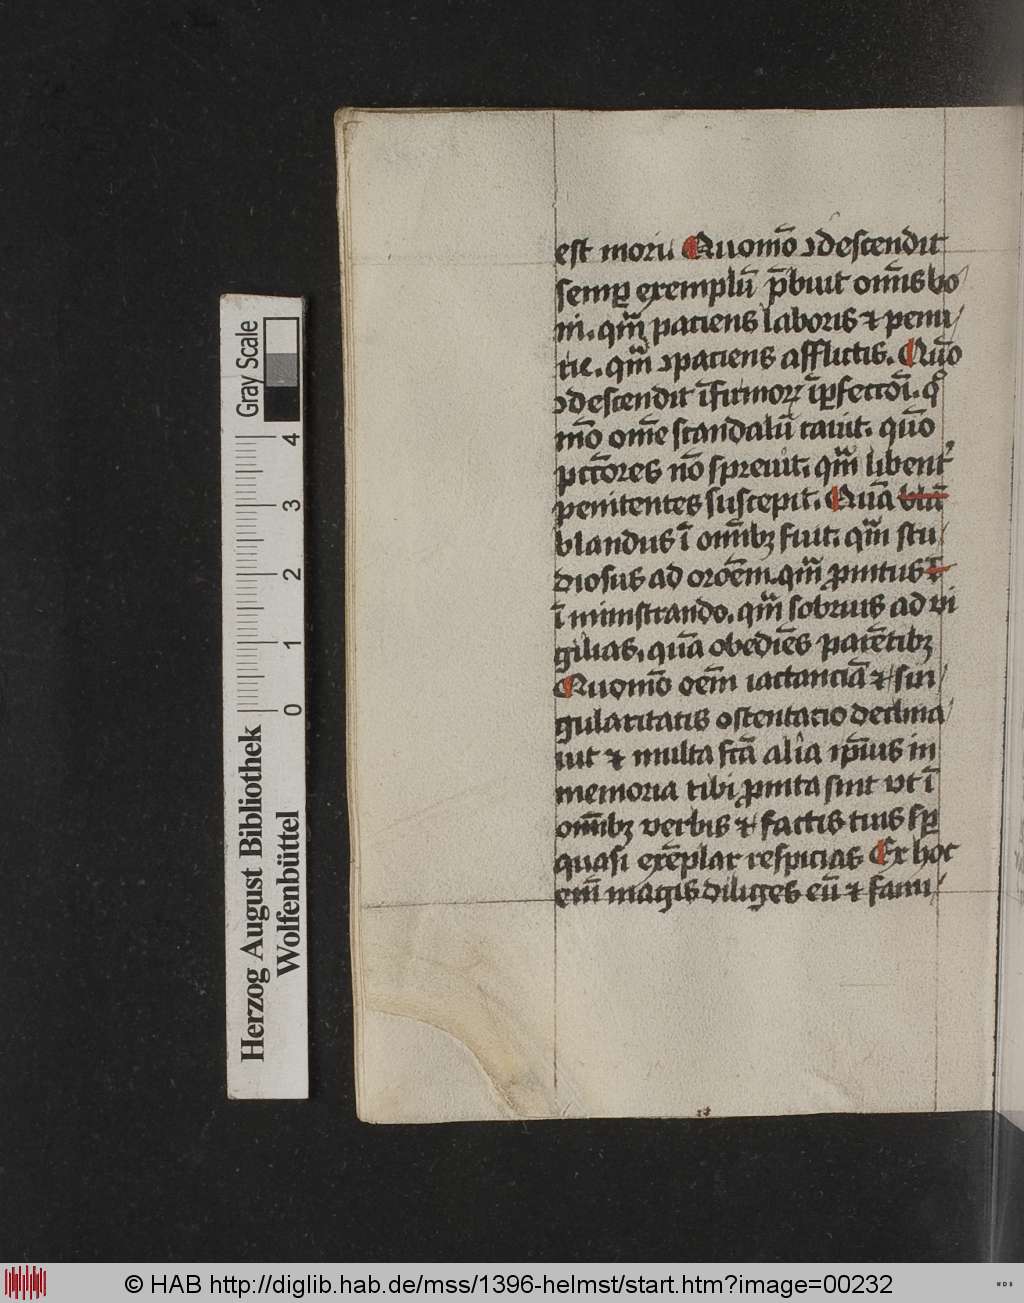 est morū Quomō ꝯdescendit
semꝑ exemplū p̄buit om̄is bo
ni. qm̄ paciens laboris ⁊ penu/
rie. qm̄ ꝯpaciens afflictis. Quō
ꝯdescendit īfirmoꝝ īꝑfectōī. quo
mō om̄e scandalū cauit. quō
pctōres nō spreuit. qm̄ libent᾽
penitentes suscepit. Quā
blandus ī om̄ibꝫ fuit. qm̄ stu/
diosus ad oroēm. qm̄ ꝓmtus
ī ministrando. qm̄ sobrius ad vi
gilias. quā obediēs parētibꝫ
Quomō oēm iactanciā ⁊ sin/
gularitatis ostentatio declina/
uit ⁊ multa fcā alia ip̄ius in
memoria tibi ꝓmta sint vt ī
om̄ibꝫ verbis ⁊ factis tuis sꝑ
quasi exēplar respicias Ex hoc
em̄ magis diliges eū ⁊ fami/
Herzog August Bibliothek
Wolfenbüttel
Gray Scale
0 1 2 3 4
© HAB http://diglib.hab.de/mss/1396-helmst/start.htm?image=00232